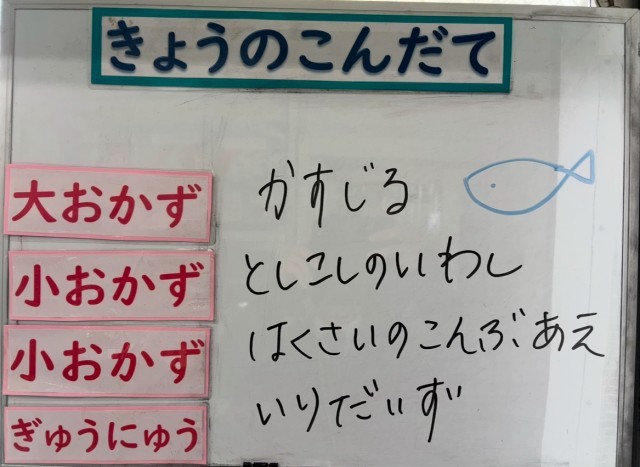 きょうのこんだて
大おかず かすじる
小おかず としこしのいわし
小おかず はくさいのこんぶあえ
ぎゅうにゅう いりだいず